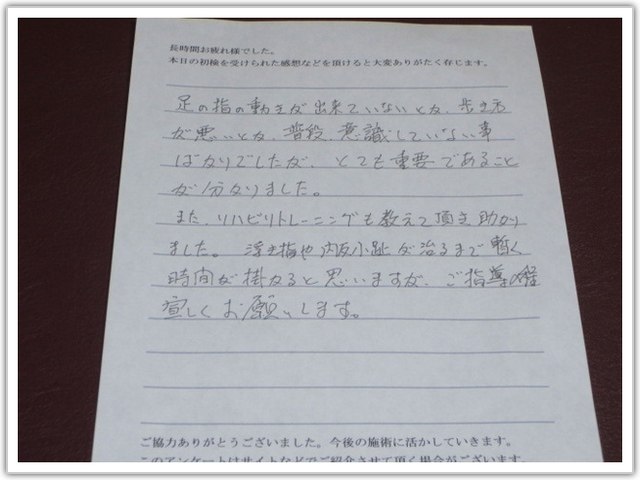 長時間お疲れ様でした。
本日の初検を受けられた感想などを頂けると大変ありがたく存じます。
足の指の動きが出来ていないとか、歩き方
が悪いとか、普段、意識していない事
ばかりでしたが、とても重要であること
が分かりました。
また、リハビリトレーニングも教えて頂き助かり
ました。 浮き指や内反小趾が治るまで暫く
時間が掛かると思いますが、ご指導の程
宜しくお願いします。
ご協力ありがとうございました。今後の施術に活かしていきます。
このアンケートはサイトなどでご紹介させて頂く場合がございます。